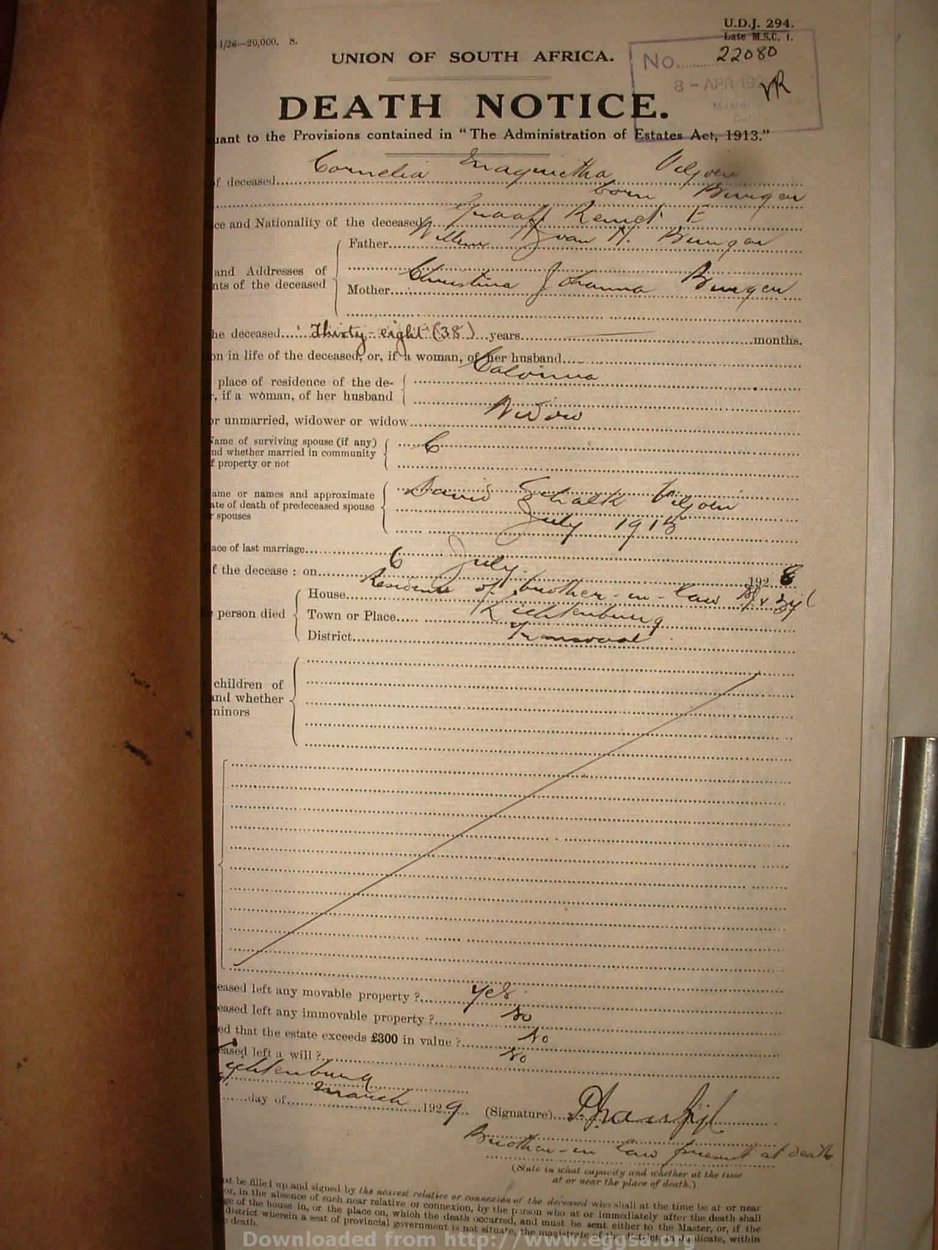 U.D.J. 294.
Late M.S.C. 1.
1/26—20,000. S.
UNION OF SOUTH AFRICA.
No. 22080
8 - APR 19
DEATH NOTICE.
uant to the Provisions contained in "The Administration of Estates Act, 1913."
f deceased Cornelia Viljoen
born Burger
ce and Nationality of the deceased Graaff Reinet
Father Willem H. Burger
and Addresses of
nts of the deceased
Mother Christina Johanna Burger
he deceased Thirty-eight (38) years months.
on in life of the deceased, or, if a woman, of her husband
place of residence of the de-
, if a woman, of her husband
or unmarried, widower or widow Widow
Name of surviving spouse (if any)
nd whether married in community
f property or not
ame or names and approximate
ate of death of predeceased spouse
r spouses
David Schalk Viljoen
July 1918
ace of last marriage
f the decease : on 6 July 1928
House Residence of brother-in-law
person died
Town or Place Lichtenburg
District Transvaal
children of
and whether
minors
eased left any movable property ? Yes
eased left any immovable property ? No
ed that the estate exceeds £300 in value ? No
eased left a will ? No
Lichtenburg
day of March 1929 (Signature)
Brother-in law present at death
(State in what capacity and whether at the time
at or near the place of death.)
st be filled up and signed by the nearest relative or connexion of the deceased who shall at the time be at or near
or, in the absence of such near relative or connexion, by the person who at or immediately after the death shall
ge of the house in, or the place on, which the death occurred, and must be sent either to the Master, or, if the
district wherein a seat of provincial government is not situate, the magistrate of the district in duplicate, within
death.
Downloaded from http://www.eggsa.org